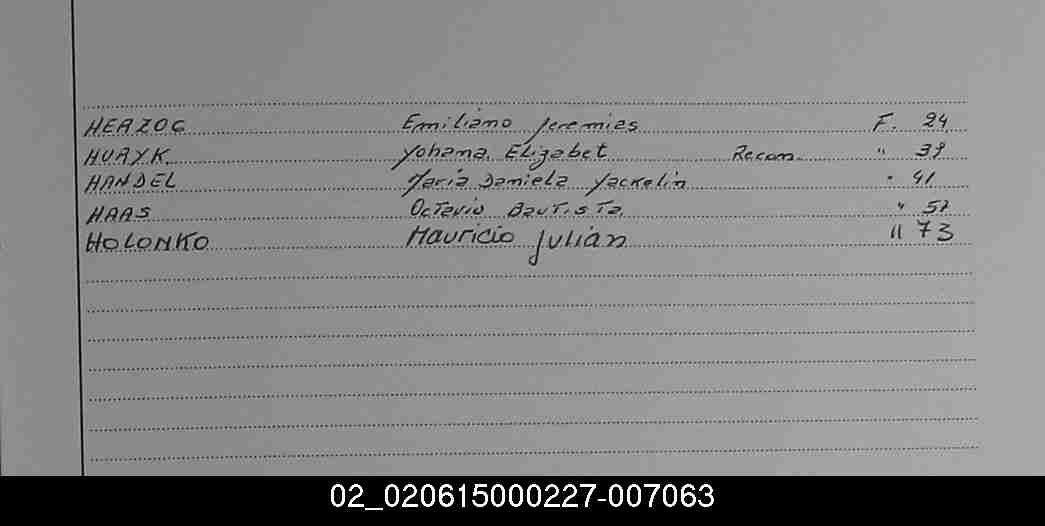 HERZOG Emiliano Jeremias F. 24
HUAYK Yohana Elizabet Recon. " 39
HANDEL Maria Daniela Yackelin " 41
HAAS Octavio Bautista " 57
HOLONKO Mauricio Julián " 73
02_020615000227-007063